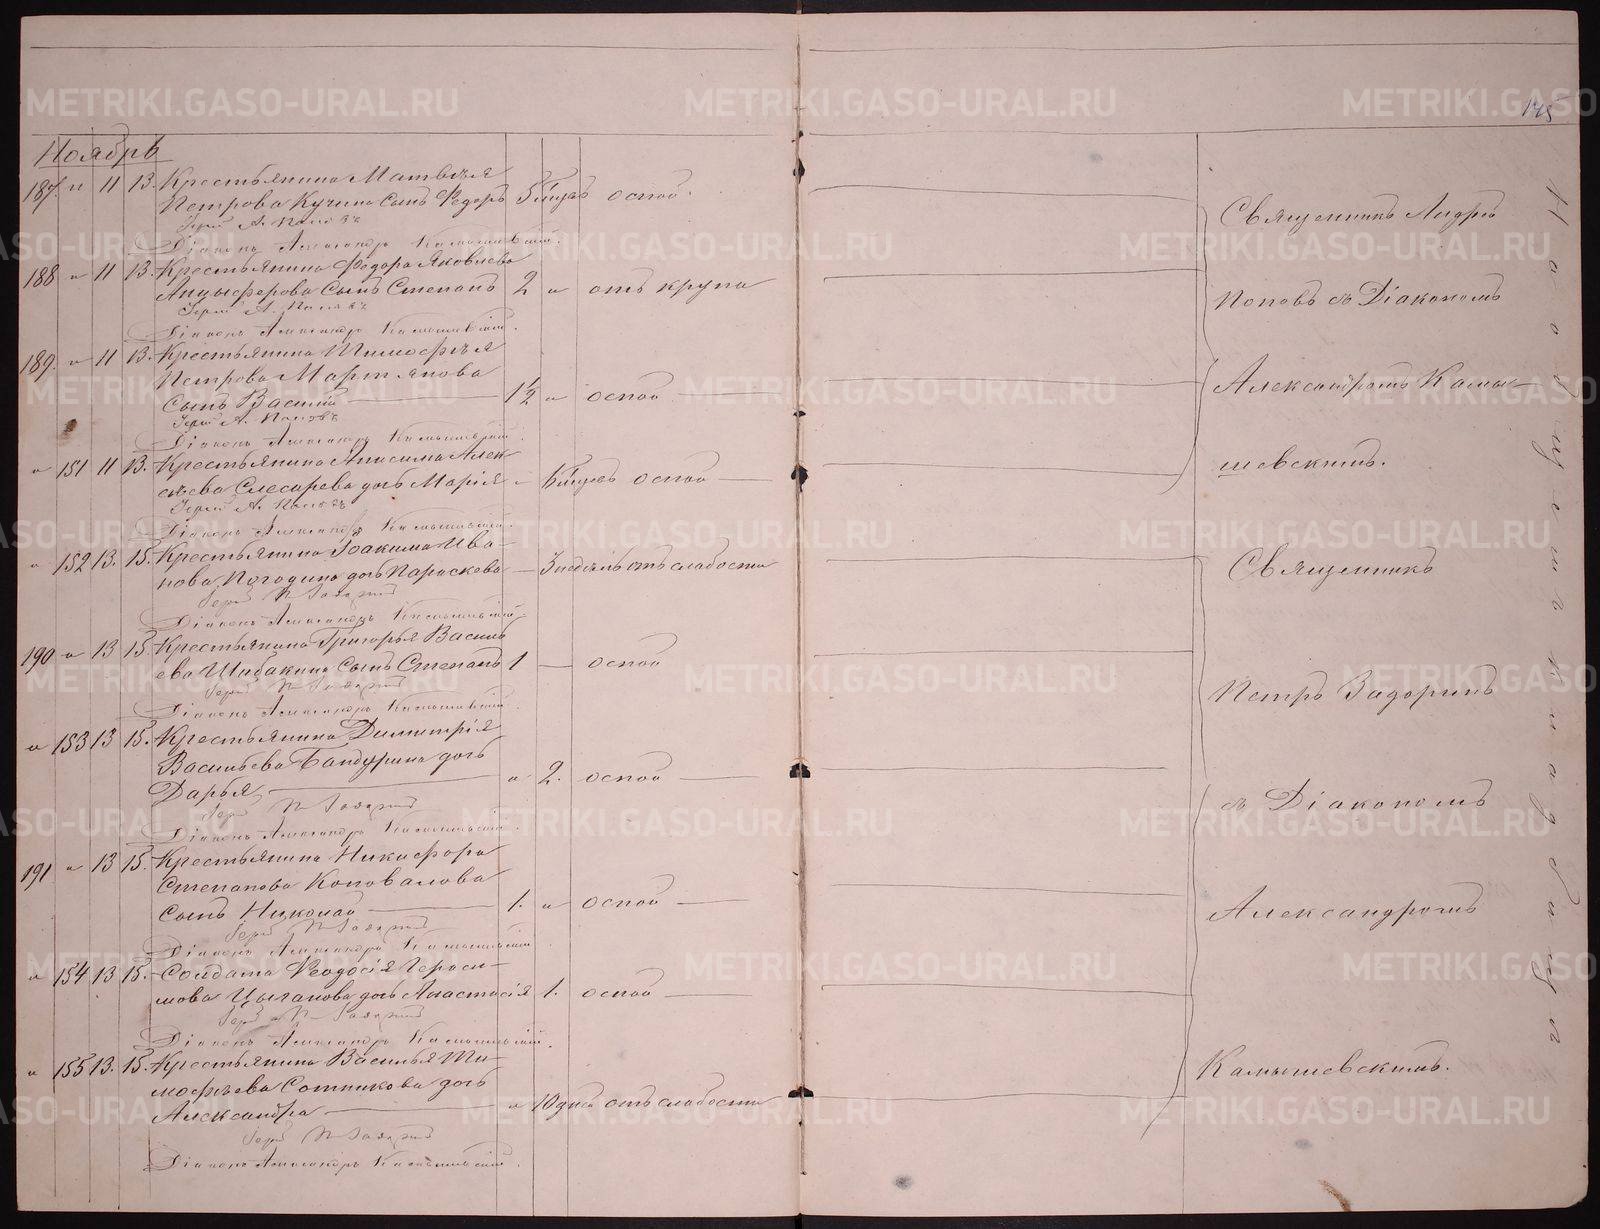 175
Ноябрь
187. " 11 13. Крестьянина Матвѣя
Петрова Кучина сынъ Ѳедоръ 5 мѣсяцъ оспой.
Іерей А. Поповъ
Діаконъ Александръ Камышевскій.
188 " 11 13. Крестьянина Ѳедора Яковлева
Анцыферова сынъ Степанъ 2 " отъ крупа
Іерей А. Поповъ
Діаконъ Александръ Камышевскій.
189. " 11 13. Крестьянина Тимоѳѣя
Петрова Мартьянова
сынъ Василій 1½ " оспой
Іерей А. Поповъ
Діаконъ Александръ Камышевскій.
" 151 11 13. Крестьянина Анисима Алек-
сѣева Слесарева дочь Марія " 6 мѣсяцъ оспой
Іерей А. Поповъ
Діаконъ Александръ Камышевскій.
" 152 13. 15. Крестьянина Іоакима Ива-
нова Погодина дочь Параскева — 3 недѣль отъ слабости
Іерей П. Задоринъ
Діаконъ Александръ Камышевскій.
190 " 13 15 Крестьянина Григорья Василь
ева Шибакина сынъ Степанъ 1 — оспой
Іерей П. Задоринъ
Діаконъ Александръ Камышевскій.
" 153 13 15. Крестьянина Димитрія
Васильева Бандурина дочь
Дарья, " 2. оспой
Іерей П. Задоринъ
Діаконъ Александръ Камышевскій.
191 " 13 15. Крестьянина Никифора
Степанова Коновалова
сынъ Николай 1. " оспой
Іерей П. Задоринъ
Діаконъ Александръ Камышевскій
" 154 13 15. Солдата Ѳеодосія Гераси-
мова Цыганова дочь Анастасія 1. оспой
Іерей П. Задоринъ
Діаконъ Александръ Камышевскій.
" 155 13. 15. Крестьянина Василья Ти-
моѳѣева Сотникова дочь
Александра " 10 дней отъ слабости
Іерей П. Задоринъ
Діаконъ Александръ Камышевскій.
Священникъ Андрей
Поповъ съ Діакономъ
Александромъ Камы-
шевскимъ.
Священникъ
Петръ Задоринъ
съ Діакономъ
Александромъ
Камышевскимъ.
METRIKI.GASO-URAL.RU